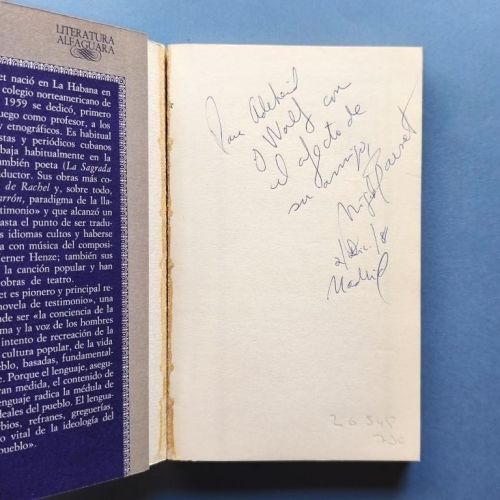 LITERATURA
ALFAGUARA
et nació en La Habana en
colegio norteamericano de
1959 se dedicó, primero
uego como profesor, a los
y etnográficos. Es habitual
stas y periódicos cubanos
baja habitualmente en la
también poeta (La Sagrada
ductor. Sus obras más co-
de Rachel y, sobre todo,
arrón, paradigma de la lla-
stimonio» y que alcanzó un
asta el punto de ser tradu-
idiomas cultos y haberse
a con música del composi-
erner Henze; también sus
la canción popular y han
obras de teatro.
et es pionero y principal re-
novela de testimonio», una
nde ser «la conciencia de la
ma y la voz de los hombres
intento de recreación de la
cultura popular, de la vida
eblo, basadas, fundamental-
e. Porque el lenguaje, asegu-
ran medida, el contenido de
enguaje radica la médula de
deales del pueblo. El lengua-
rbios, refranes, greguerías,
o vital de la ideología del
pueblo».
Para
Wolf con
el afecto de
su amigo,
Miguel Barnet
Madrid